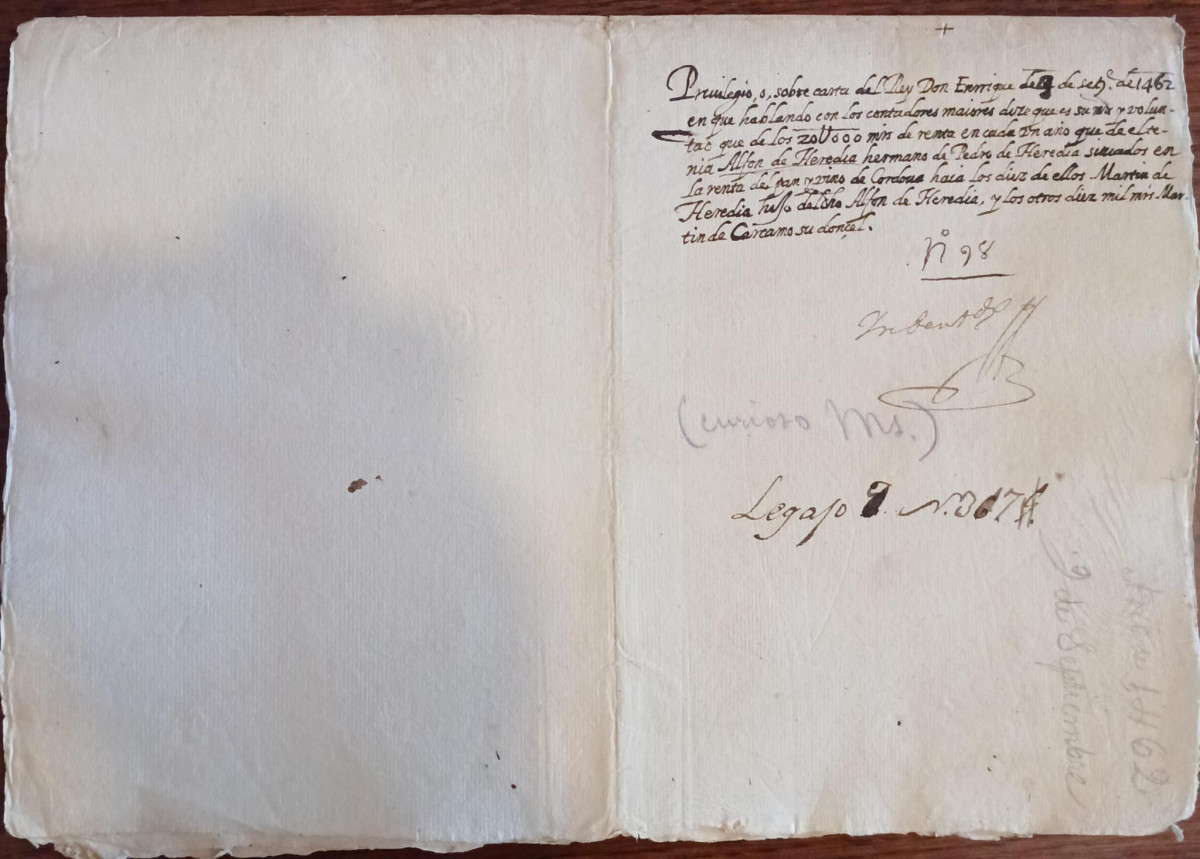 +
Privilegio, o, sobre carta del Rey Don Enrrique de 9 de setᵉ. de 1462
en que hablando con los contadores maiores dize que es su mrd y volun-
tad que de los 20U000 mrs de renta en cada un año que de el te-
nia Alfon de Heredia hermano de Pedro de Heredia situados en
la renta del pan y vino de Cordoua haia los diez de ellos Martin de
Heredia hijo del dho Alfon de Heredia, y los otros diez mil mrs Mar-
tin de Carcamo su donçel.
Nº 98
(curioso Ms.)
Legajo 9. N. 367
9 de Septiembre
1462